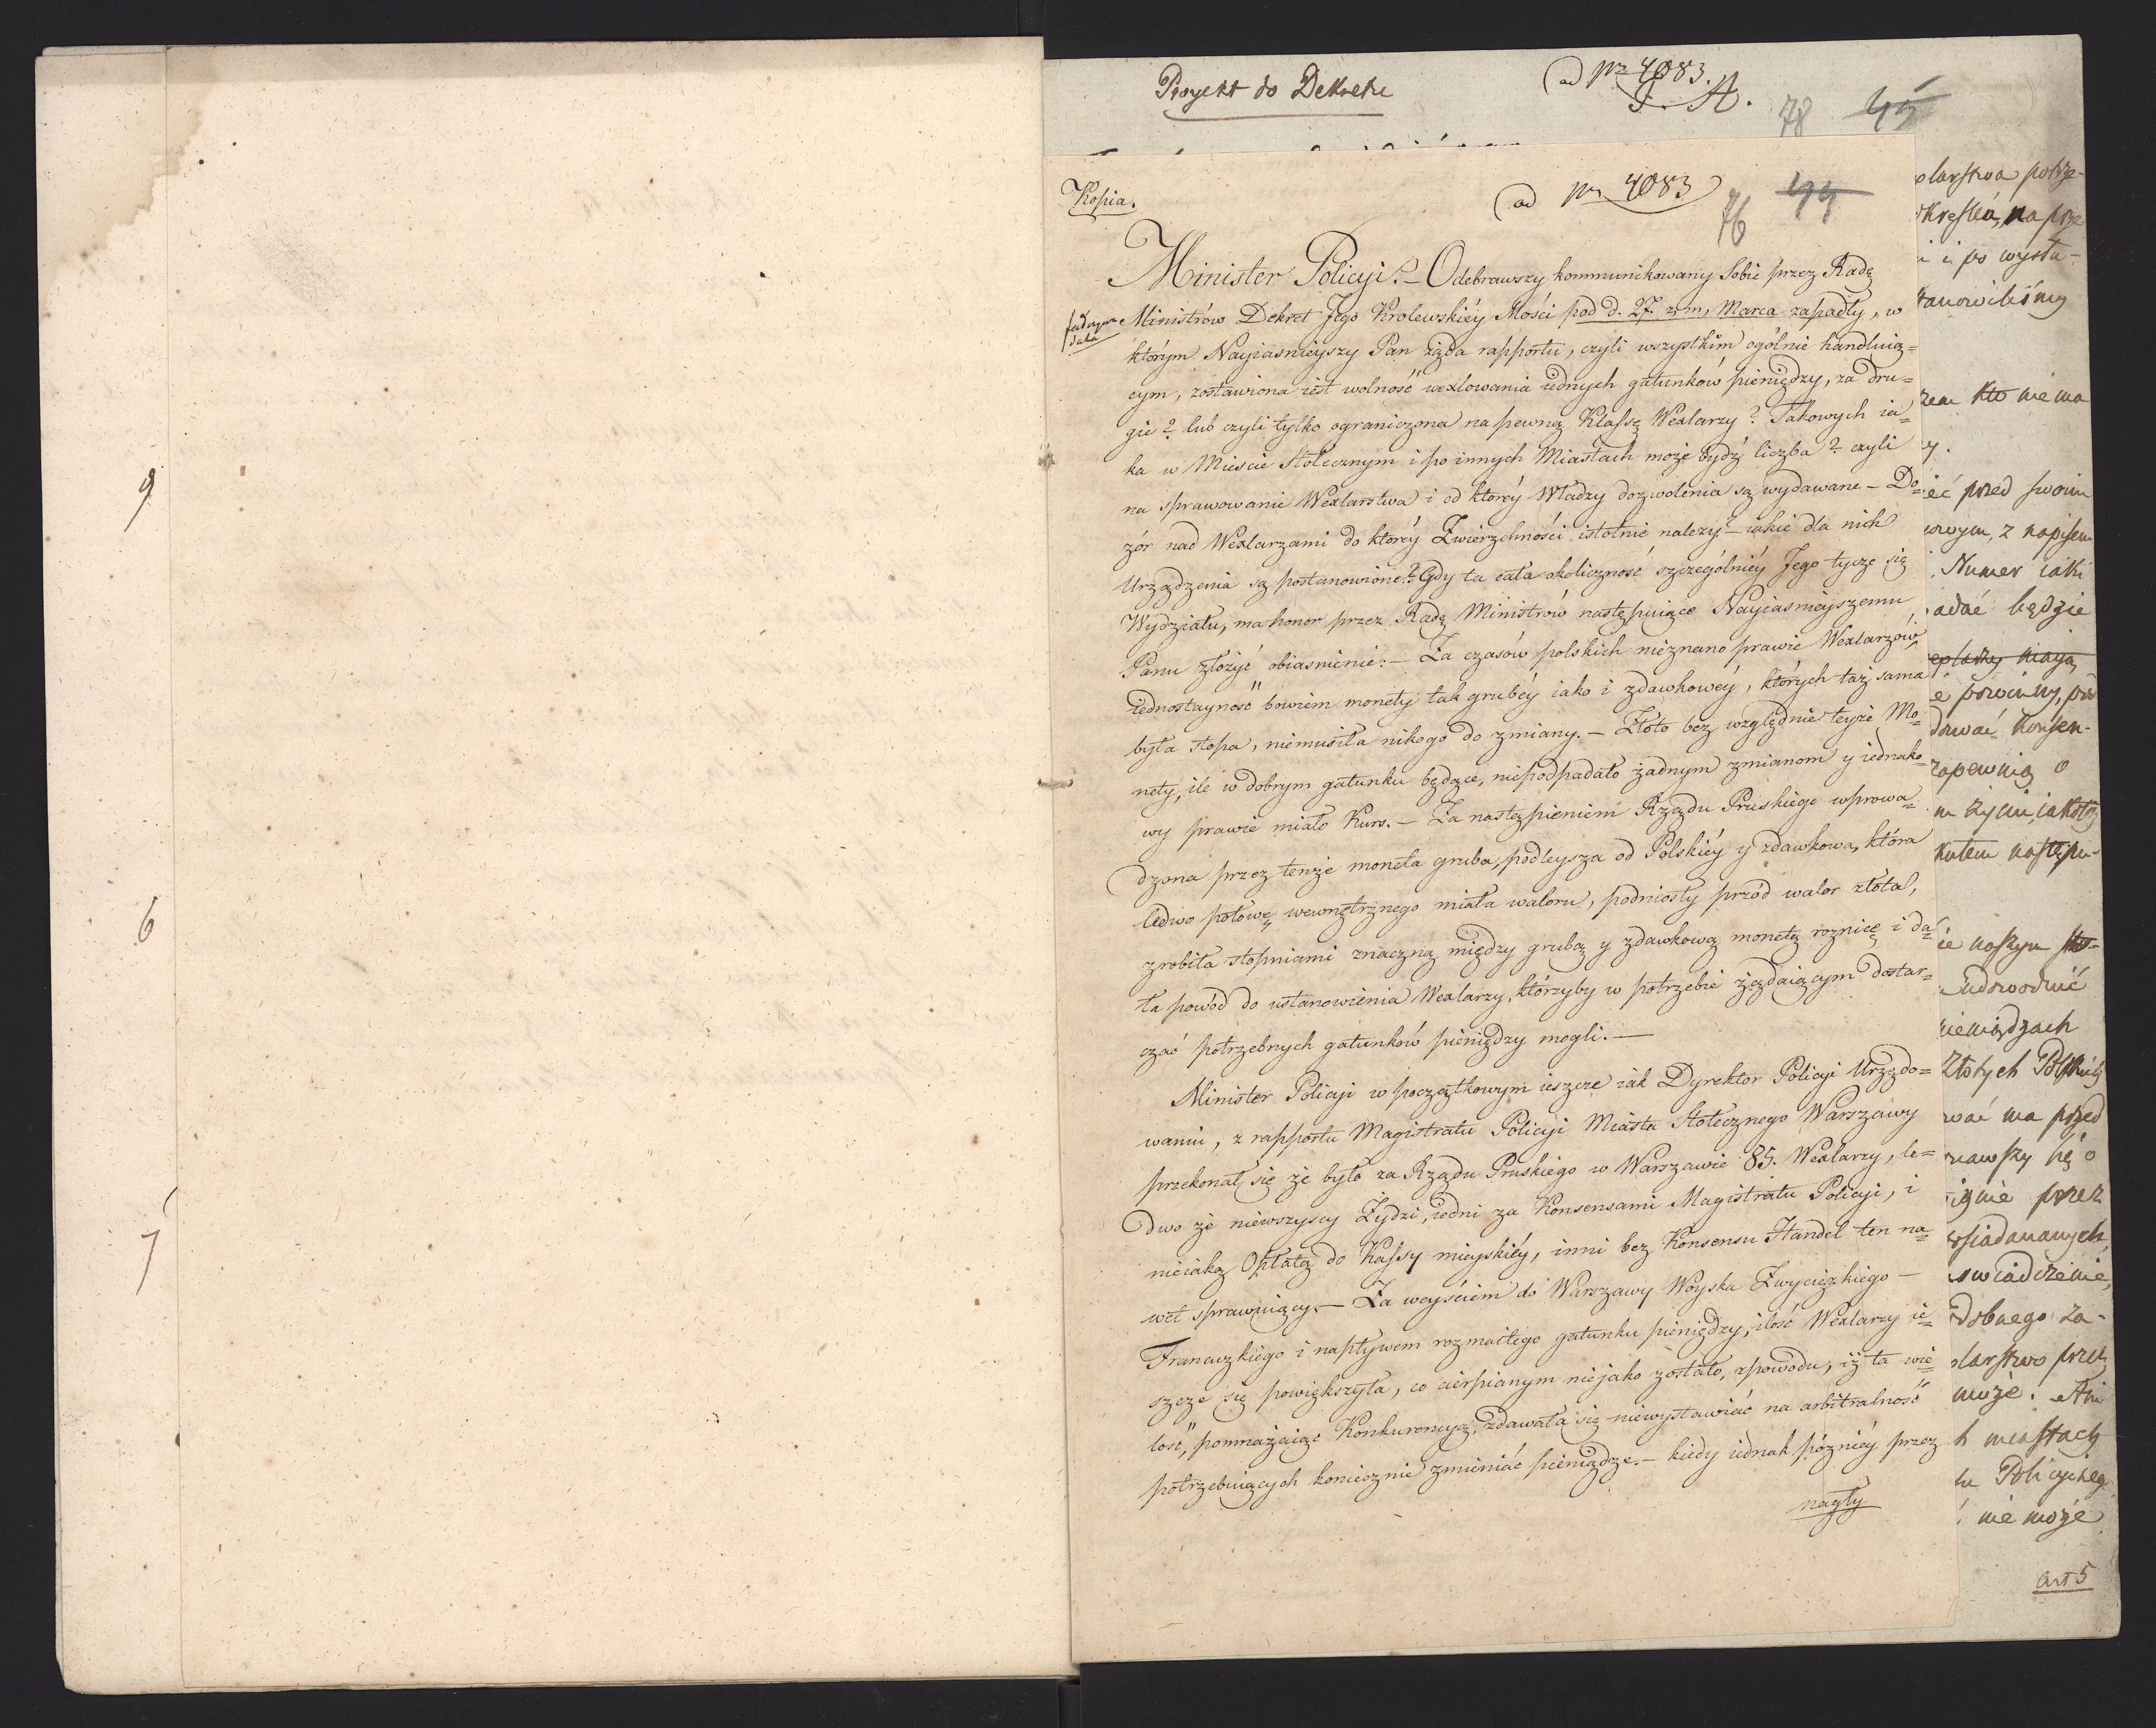 9
6
7
Proyekt do Dekretu
ad Nr 4083.
78 45
Kopia.
ad Nr 4083
76
Minister Policyi. – Odebrawszy kommunikowany Sobie przez Radę
Ministrów Dekret Jego Krolewskiéy Mości pod d. 27. z. m. Marca zapadły, w
data
którym Nayiasnieyszy Pan żąda rapportu, czyli wszystkim ogólnie handluią=
cym, zostawiona iest wolność wexlowania iednych gatunków pieniędzy, za dru=
gie? lub czyli tylko ograniczona na pewną Klassę Wexlarzy? Takowych ia=
ka w Miescie Stołecznym i po innych Miastach może bydź liczba? czyli
na sprawowanie Wexlarstwa i od któréy Władzy dozwolenia są wydawane – Do=
zór nad Wexlarzami do któréy Zwierzchności istotnie należy? – iakie dla nich
Urządzenia są postanowione? Gdy ta cała okoliczność szczególniéy Jego tycze się
Wydziału, ma honor przez Radę Ministrów następuiące Nayiasnieyszemu
Panu złożyć obiasnienie: – Za czasów polskich nieznano prawie Wexlarzów,
iednostayność bowiem monety tak grubéy iako i zdawkowéy, których taż sama
była stopa, niemusiła nikogo do zmiany. – Złoto bez względnie teyże Mo=
nety, ile w dobrym gatunku będące, niepodpadało żadnym zmianom y iednako=
wy prawie miało Kurs. – Za nastąpieniem Rządu Pruskiego wprowa=
dzona przez tenże moneta gruba, podleysza od Polskiéy y zdawkowa, która
ledwo połowę wewnętrznego miała waloru, podniosły przód walor złota,
zrobiła stopniami znaczną między grubą y zdawkową monetą roznicę i da=
ła powód do ustanowienia Wexlarzy, którzyby w potrzebie żądaiącym dostar=
czać potrzebnych gatunków pieniędzy mogli. –
Minister Policyi w początkowym ieszcze iak Dyrektor Policyi Urzędo=
waniu, z rapportu Magistratu Policyi Miasta Stołecznego Warszawy
przekonał się że było za Rządu Pruskiego w Warszawie 85. Wexlarzy, le=
dwo że niewszyscy Żydzi, iedni za Konsensami Magistratu Policyi, i
nieiaką Opłatą do Kassy mieyskiéy, inni bez Konsensu Handel ten na=
wet sprawuiący. – Za weyściem do Warszawy Woyska Zwycięzkiego –
Francuzkiego i napływem rozmaitego gatunku pieniędzy, ilość Wexlarzy ie=
szcze się powiększyła, co cierpianym niejako zostało, z powodu, iż ta wie=
lość, pomnażaiąc Konkurencyą, zdawała się niewystawiać na arbitralność
potrzebuiących koniecznie zmieniać pieniądze. – kiedy iednak pózniéy przez
nagły
xlarstwa potrze-
okreslen, na prze-
i i po wysłu-
tanowiliśmy
zem kto nie ma
y.
ieć przed swoim
owym, z napisem
Numer iaki
adać będzie
e powinny, po
dować Konsen-
zapewnią o
m życiu, iakoteż
kutem następu-
ie naszym sto-
udowodnić
ieniądzach
Złotych Polskich
wać ma przed
nawszy się o
ignie przez
osiadanych
swiadczenie,
dobnego za-
larstwo przez
może. Ani
h miastach
u Policyinego
nie może
Art 5